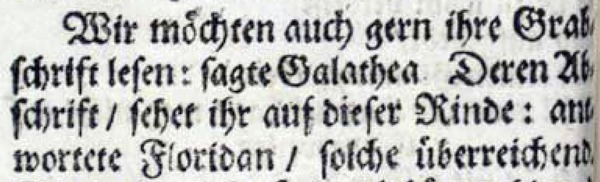 Wir möchten auch gern ihre Grab-
ſchrift leſen: ſagte Galathea. Deren Ab-
ſchrift / ſehet ihr auf dieſer Rinde: ant-
wortete Floridan / ſolche überreichend.